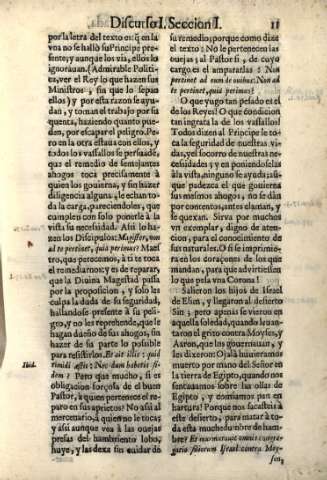 Discurso I. Seccion I.
11
por la letra del texto es: q̃ en la
vna no se hallò su Principe pre-
sente; y aunque los via, ellos lo
ignorauan. (Admirable Politi-
ca, ver el Rey lo que hazen sus
Ministros, sin que lo sepan
ellos) y por esta razon se ayu-
dan, y toman el trabajo por su
quenta, haziendo quanto pue-
den, por escapar el peligro. Pe-
ro en la otra estaua con ellos, y
todos los vassallos se persuadẽ,
que el remedio de semejantes
ahogos toca precisamente à
quien los gouierna, y sin hazer
diligencia alguna, le echan to-
da la carga, pareciendoles, que
cumplen con solo ponerle à la
vista su necessidad. Assi lo ha-
zen los Discipulos: Magister, non
ad te pertinet, quia perimus? Maes-
tro, que perecemos, à ti te toca
el remediarnos: y es de reparar,
que la Diuina Magestad passa
por la proposicion, y solo les
culpa la duda de su seguridad,
hallandose presente à su peli-
gro, y no les reprehende, que le
hagan dueño de sus ahogos, sin
hazer de su parte lo possible
para resistirlos. Et ait illis: quid
timidi estis? Nec dum habetis fi-
dem? Pero que mucho, si es
obligacion forçosa de el buen
Pastor, à quien pertenece el re-
paro en sus aprietos? No assi al
mercenario, à quien no le tocas
y assi aunque vea à las ouejas
presas del hambriento lobo,
huye, y las dexa sin cuidar de
Ibid.
su remedio; porque como dize
el texto: No le pertenecen las
ouejas; al Pastor si, de cuyo
cargo es el ampararlas: Non
pertinet ad eum de ouibus: Non ad
te pertinet, quia perimus?
O que yugo tan pesado es el
de los Reyes! O que condicion
tan ingrata la de los vassallos!
Todos dizen al Principe le to-
ca la seguridad de nuestras vi-
das, y el socorro de nuestras ne-
cessidades: y en poniendoselas
à la vista, ninguno se ayuda; aũ-
que padezca el que gouierna
sus mismos ahogos, no se dàn
por contentos, antes claman, y
se quexan. Sirva por muchos
vn exemplar, digno de aten-
cion, para el conocimiento de
sus naturales. O si se imprimie-
ra en los coraçones de los que
mandan, para que advirtiessen
lo que pesa vna Corona!
Salieron los hijos de Israel
de Elim, y llegaron al desierto
Sin; pero apenas se vieron en
aquella soledad, quando leuan-
taron el grito contra Moyses, y
Aaron, que los gouernauan, y
les dixeron: Ojalà huuieramos
muerto por mano del Señor en
la tierra de Egipto, quando nos
sentauamos sobre las ollas de
Egipto, y comiamos pan en
hartura! Porque nos sacastis à
este desierto, para matar à to-
da esta muchedumbre de ham-
bre? Et murmurauit omnis congre-
gatio filiorum Israel contra Moy-
sen,